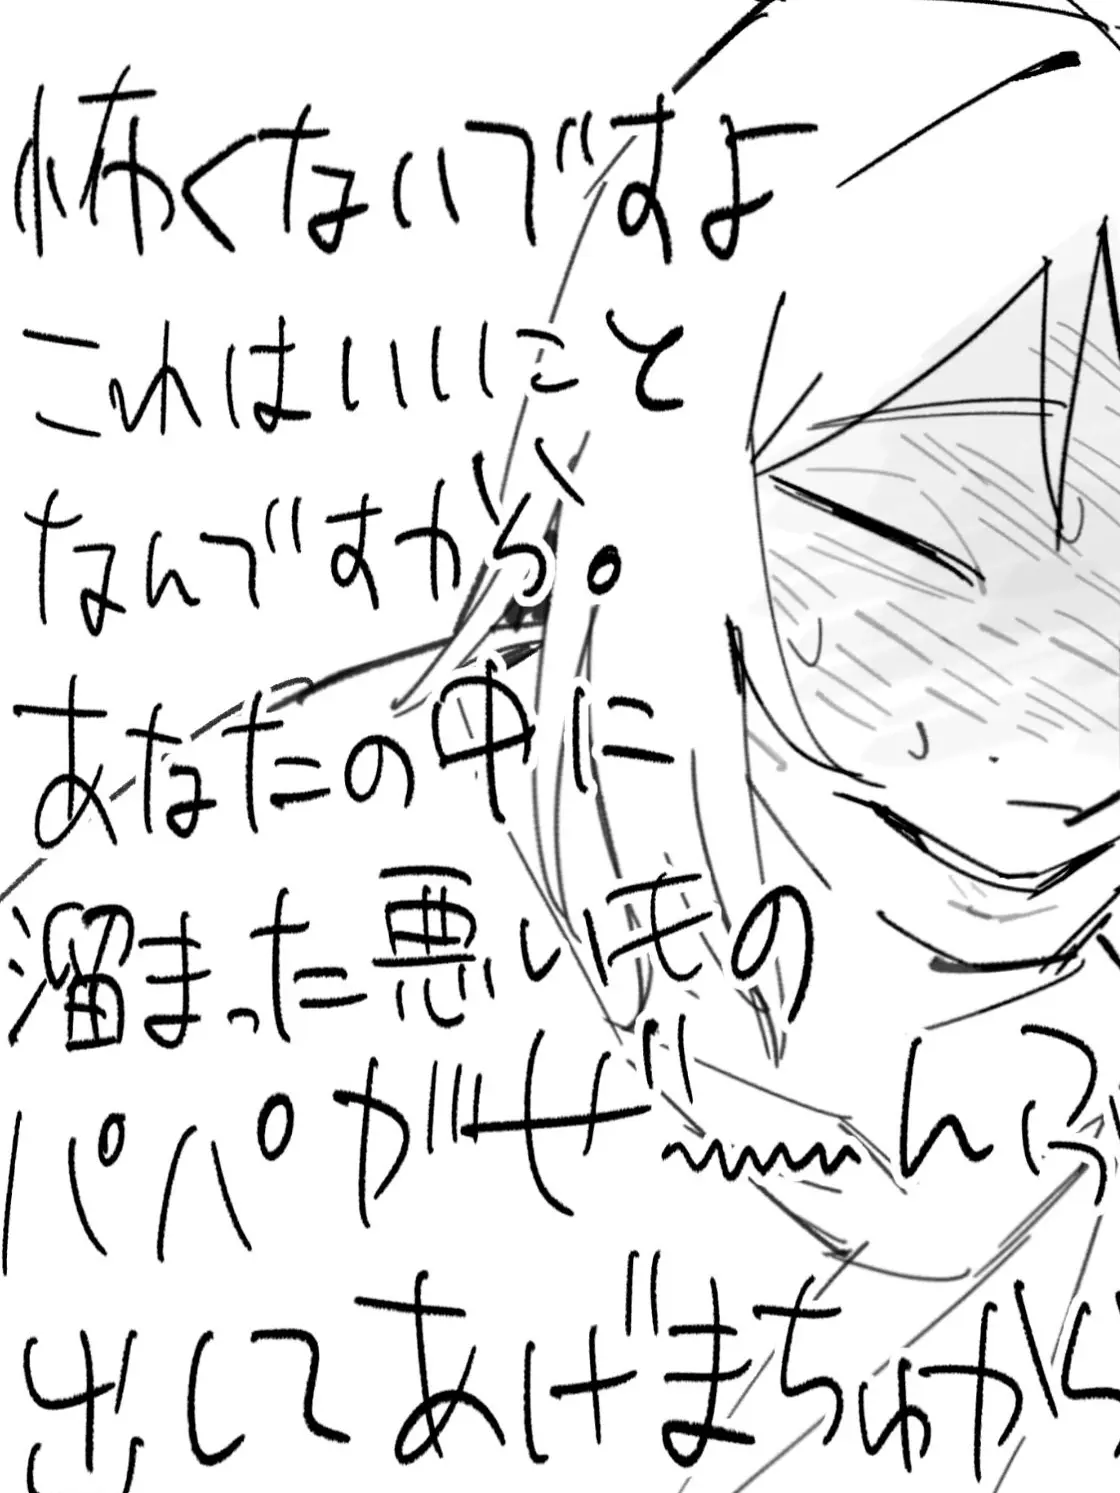 怖くないですよ
これはいいこと
なんですから。
あなたの中に
溜まった悪いもの
パパがぜ〰んぶ
出してあげまちゅから